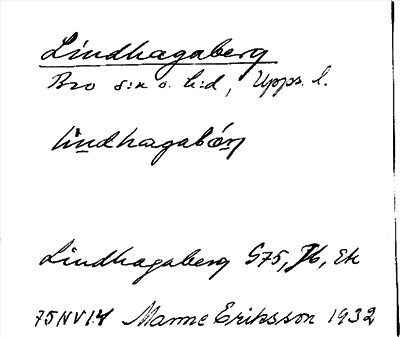 Lindhagaberg
Bro s:n o. h:d, Upps. l.
lindhagabárj
Lindhagaberg G75, Jb, Ek
75NV1.4 Manne Eriksson 1932